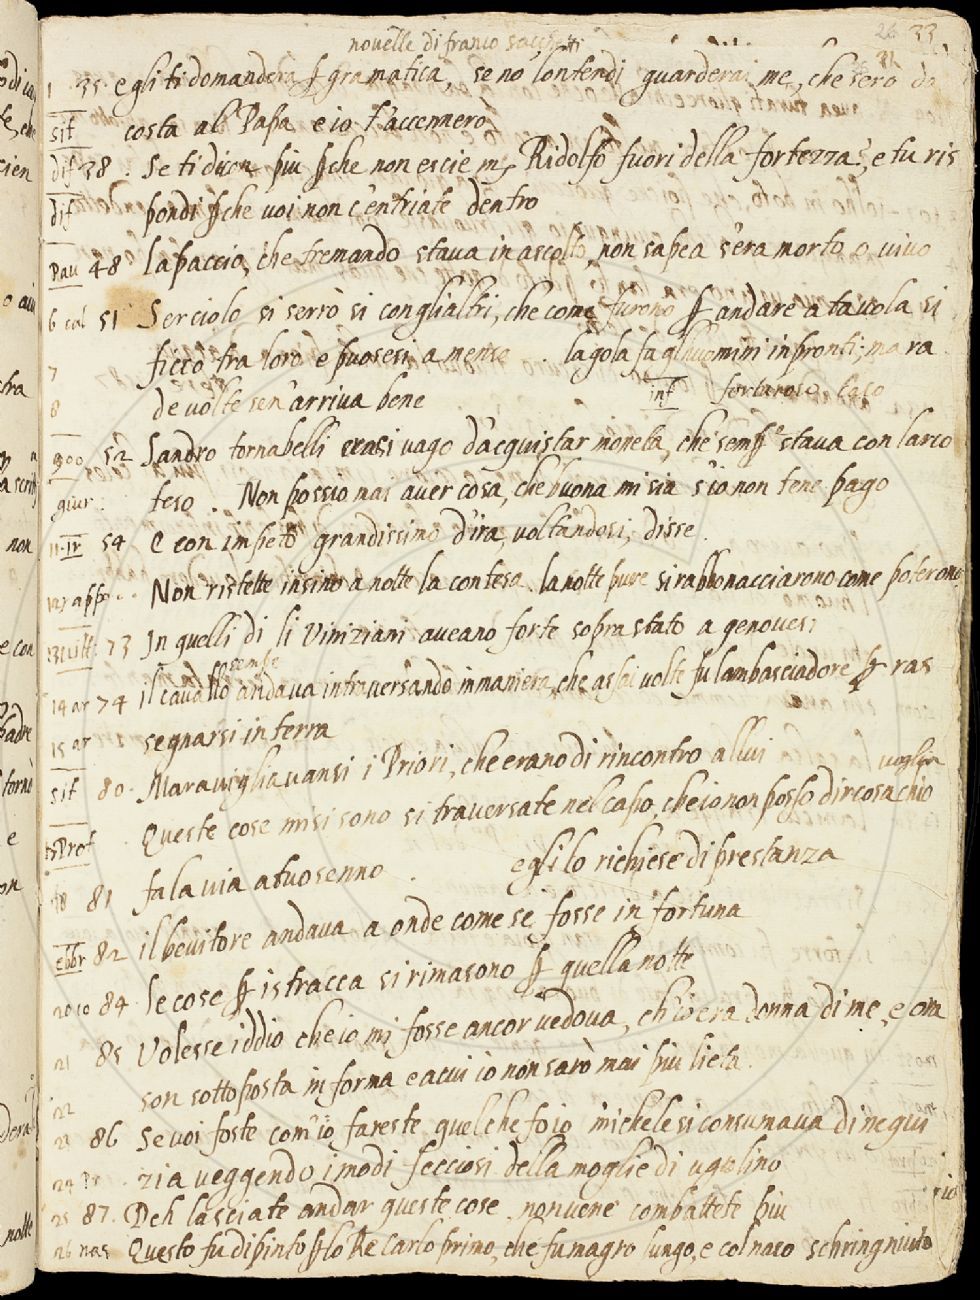 novelle di franco sacchetti
26 33
1 35 e gli ti domandera p gramatica, se no lontendi guarderai me, che sero da
sit costa al Papa e io t'accennero
dif 38 . Se ti dicon piu pche non escie m Ridolfo fuori della fortezza, e tu ris
dif pondi pche voi non c'entriate dentro
Pau 48 lapaccio, che tremando stava in ascolto, non sapea s'era morto o vivo
6 col 51 Ser ciolo si serrò si con gli altri, che come furono p andare a tavola si
7 ficcò tra loro e puosesi a mensa . la gola fa gli uomini inpronti; ma ra
8 de volte sen'arriva bene inf fortunoso caso
goo 52 Sandro tornabelli erasi vago d'acquistar moneta, che semp stava con larco
giur . teso . Non possio mai aver cosa, che buona mi sia s'io non tene pago
11 Ir 54 E con impeto grandissimo d'ira, voltandosi, disse.
12 app . . Non ristette insino a notte la contesa la notte pure si rabbonacciarono come poterono
13 73 In quelli di li Viniziani aveano forte soprastato a genovesi
sempe
14 ar 74 il cavallo andava intraversando in maniera, che assai volte fu lambasciadore p ras
15 ar segnarsi in terra
sit 80 . Maravigliavansi i Priori, che erano di rincontro a llui voglion
Prof . Queste cose mi si sono si traversate nel capo, che io non posso dir cosa chio
18 81 fa la via a tuo senno . egli lo richiese di prestanza
ebbr 82 il bevitore andava a onde come se fosse in fortuna
20 co 84 le cose p istracca si rimasono p quella notte
21 85 Volesse iddio che io mi fosse ancor vedova, ch'io era donna di me, e ora
22 son sottoposta in forma e a cui io non sarò mai piu lieta.
23 86 Se voi foste com'io, fareste quel che fo io michele si consumava di nequi
24 . zia veggendo i modi fecciosi della moglie di ugolino
25 87. Deh lasciate andar queste cose nonvene combattete piu
26 nas Questo fu dipinto plo Re Carlo primo, che fu magro lungo, e col naso schringniuto